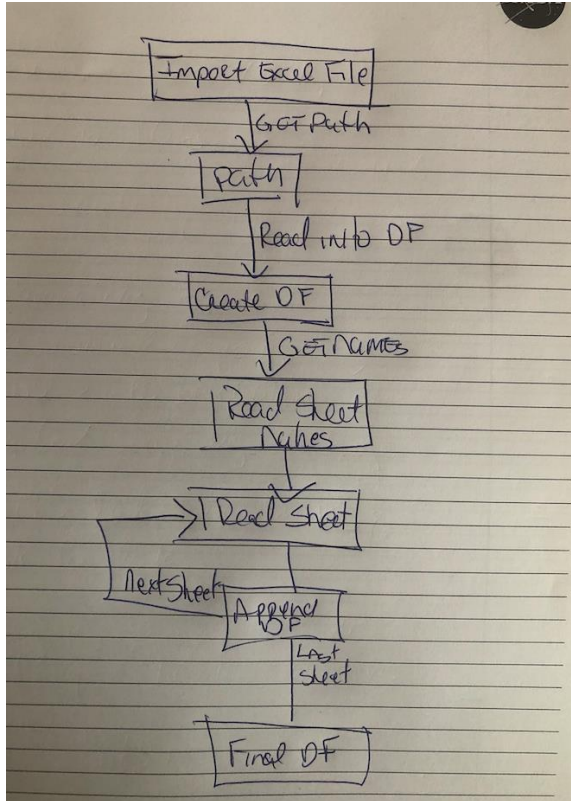 Import Excel File
GET Path
Path
Read into DF
Create DF
GET NAMES
Read Sheet
Names
Read Sheet
Next Sheet
Append
DF
LAST
Sheet
Final DF